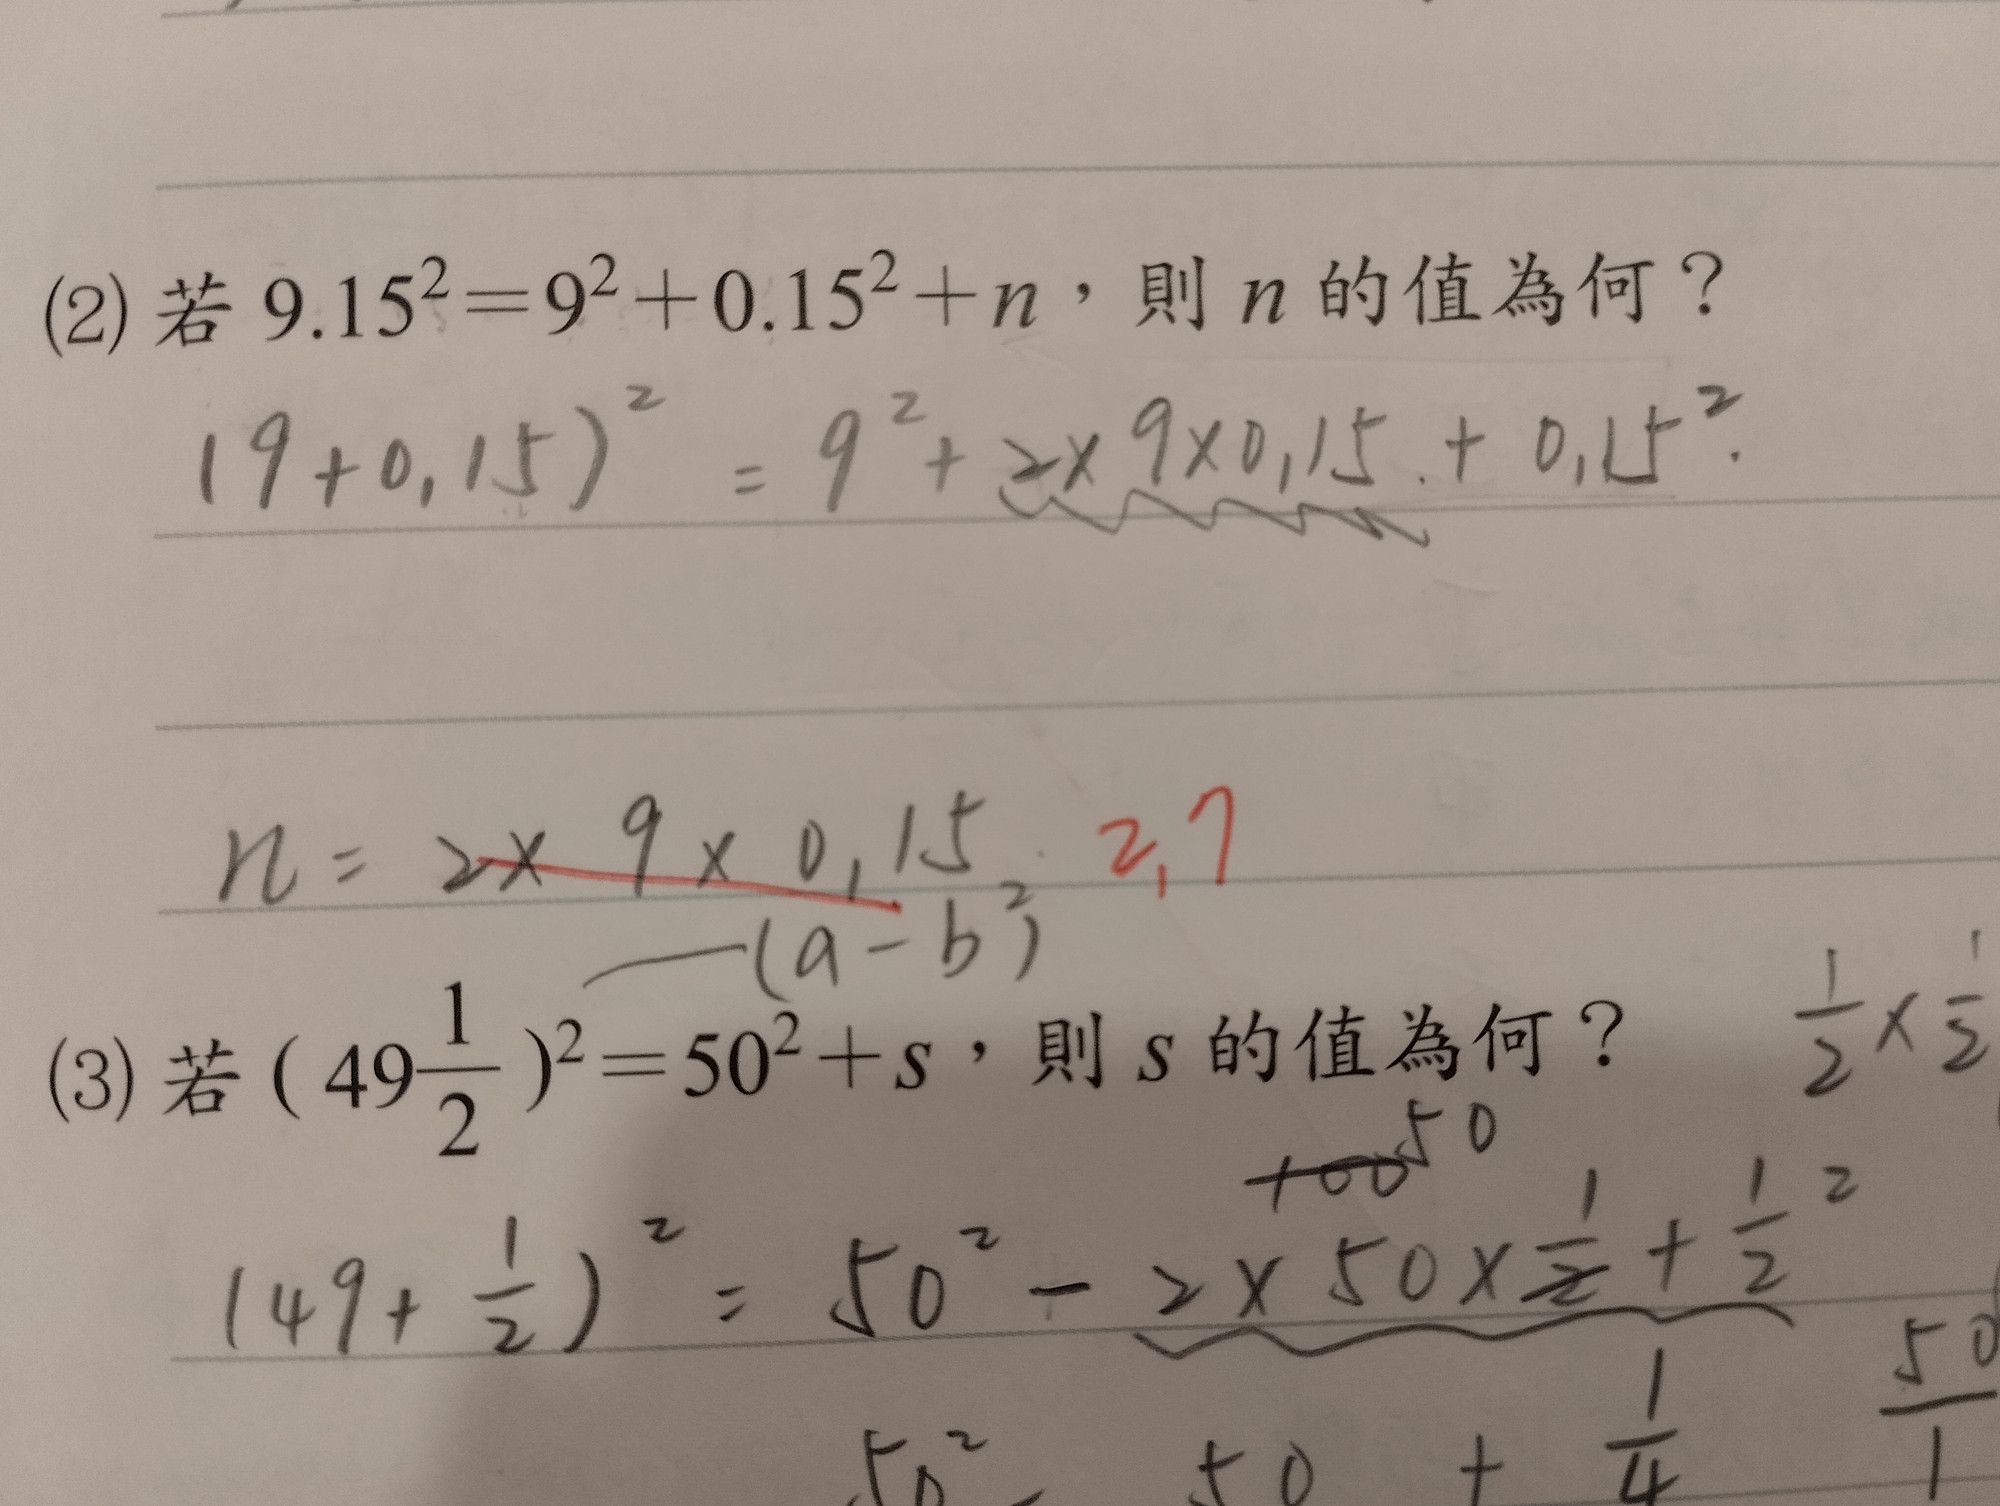 (2) 若 9.15²=9²+0.15²+n，則 n 的值為何？
(9+0,15)² = 9²+2×9×0,15.+0,15².
n = 2× 9 × 0,15. 2,7
(a-b)²
(3) 若 (49 1/2)²=50²+s，則 s 的值為何？
1/2 × 1/2
100 50
(49+1/2)² = 50² - 2×50×1/2+1/2²
50² - 50 + 1/4
50/1